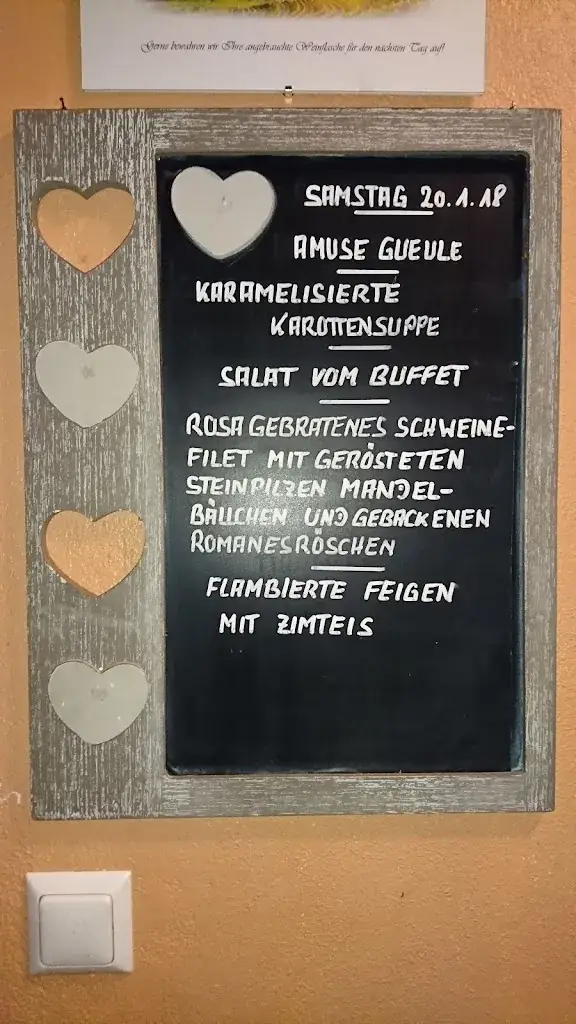 Gerne bewahren wir Ihre angebrauchte Weinflasche für den nächsten Tag auf!
SAMSTAG 20.1.18
AMUSE GUEULE
KARAMELISIERTE
KAROTTENSUPPE
SALAT VOM BUFFET
ROSA GEBRATENES SCHWEINE-
FILET MIT GERÖSTETEN
STEINPILZEN MANDEL-
BÄLLCHEN UND GEBACKENEN
ROMANESRÖSCHEN
FLAMBIERTE FEIGEN
MIT ZIMTEIS